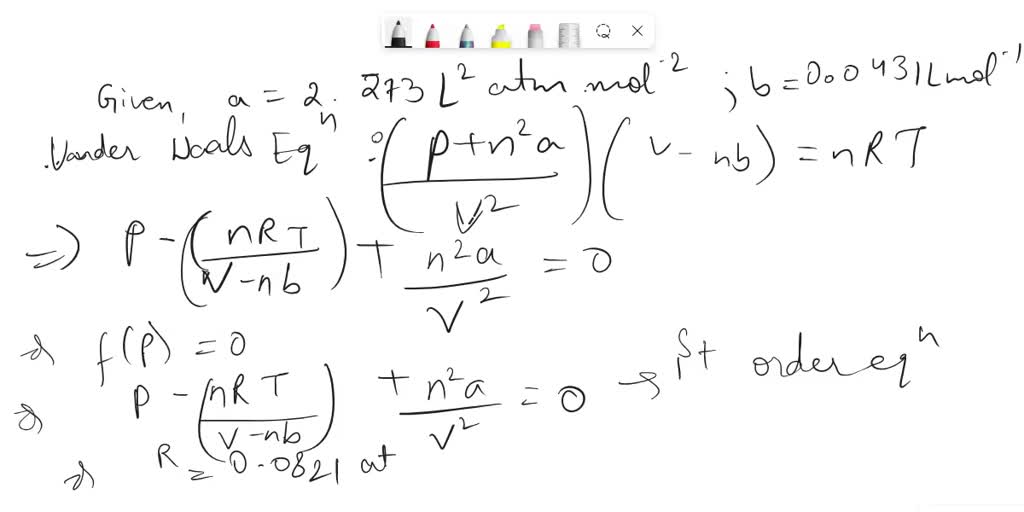 Given, a = 2.273 L² atm mol⁻² ; b = 0.0431 L mol⁻¹
Vander Waals Eqⁿ : (P + n²a / V²) (V - nb) = nRT
=> P - (nRT / V - nb) + n²a / V² = 0
=> f(P) = 0
=> P - (nRT / V - nb) + n²a / V² = 0 → 1st order eqⁿ
=> R = 0.0821 at